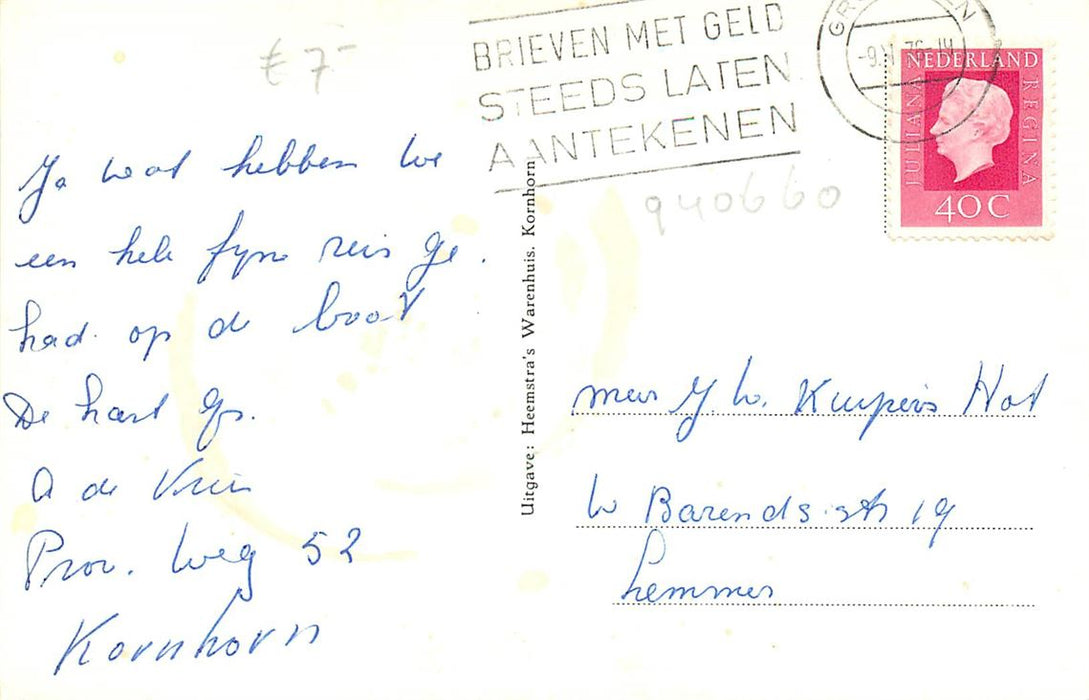 € 7-
BRIEVEN MET GELD
STEEDS LATEN
AANTEKENEN
-9.
NEDERLAND
JULIANA
REGINA
40C
940660
Ja wat hebben we
een hele fyne reis ge.
had. op de boot
De hart gr.
A de Vries
Prov. weg 52
Kornhorn
Uitgave: Heemstra's Warenhuis. Kornhorn
W. Kuipers
W Barendsstr 19
Lemmer